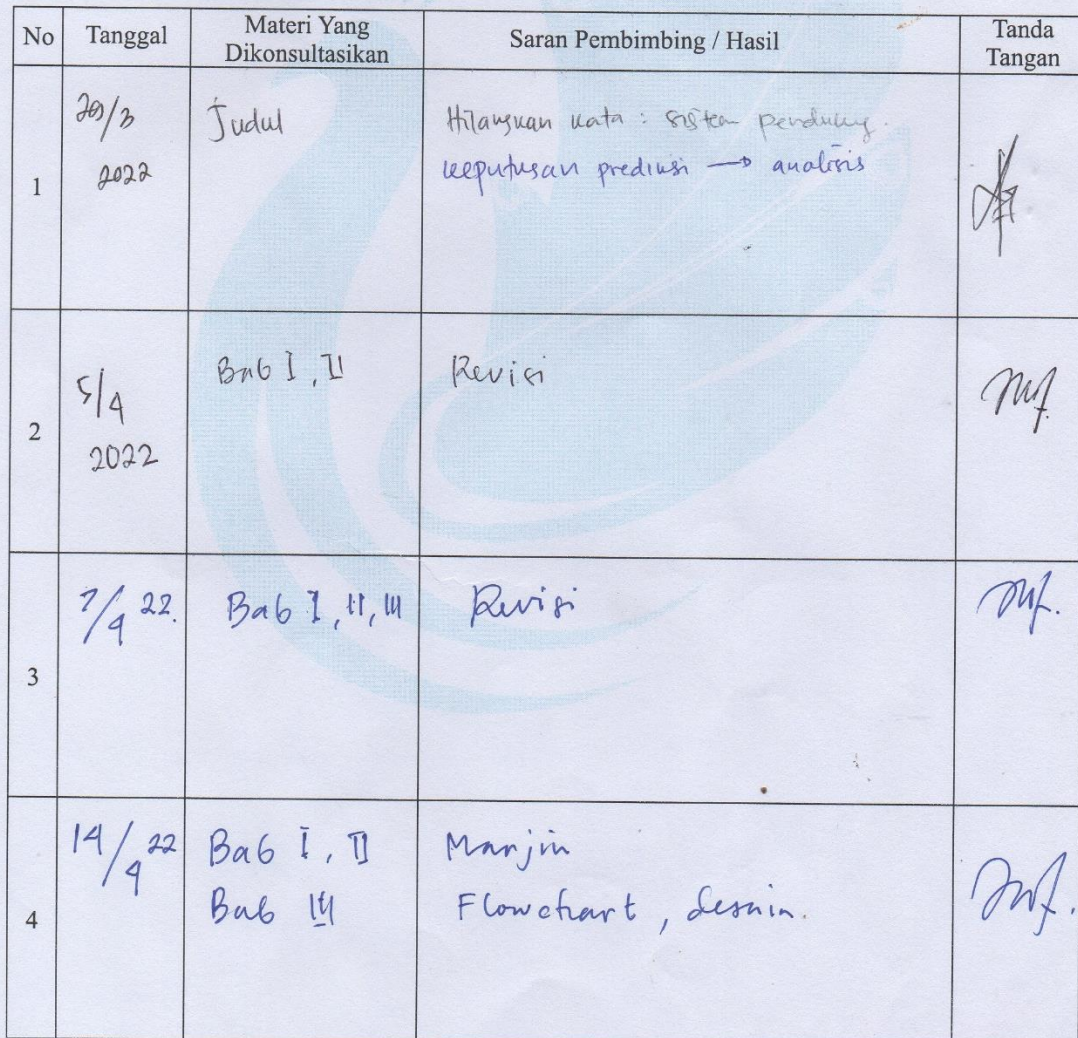 No Tanggal Materi Yang Dikonsultasikan Saran Pembimbing / Hasil Tanda Tangan
1
2022
Judul
Hilangkan kata : sistem pendukung
keputusan prediksi → analisis
2
5/4
2022
Bab I, II
Revisi
3
7/4 22.
Bab I, II, III
Revisi
4
14/4 22
Bab I, II
Marjin
Bab III
Flowchart, desain.